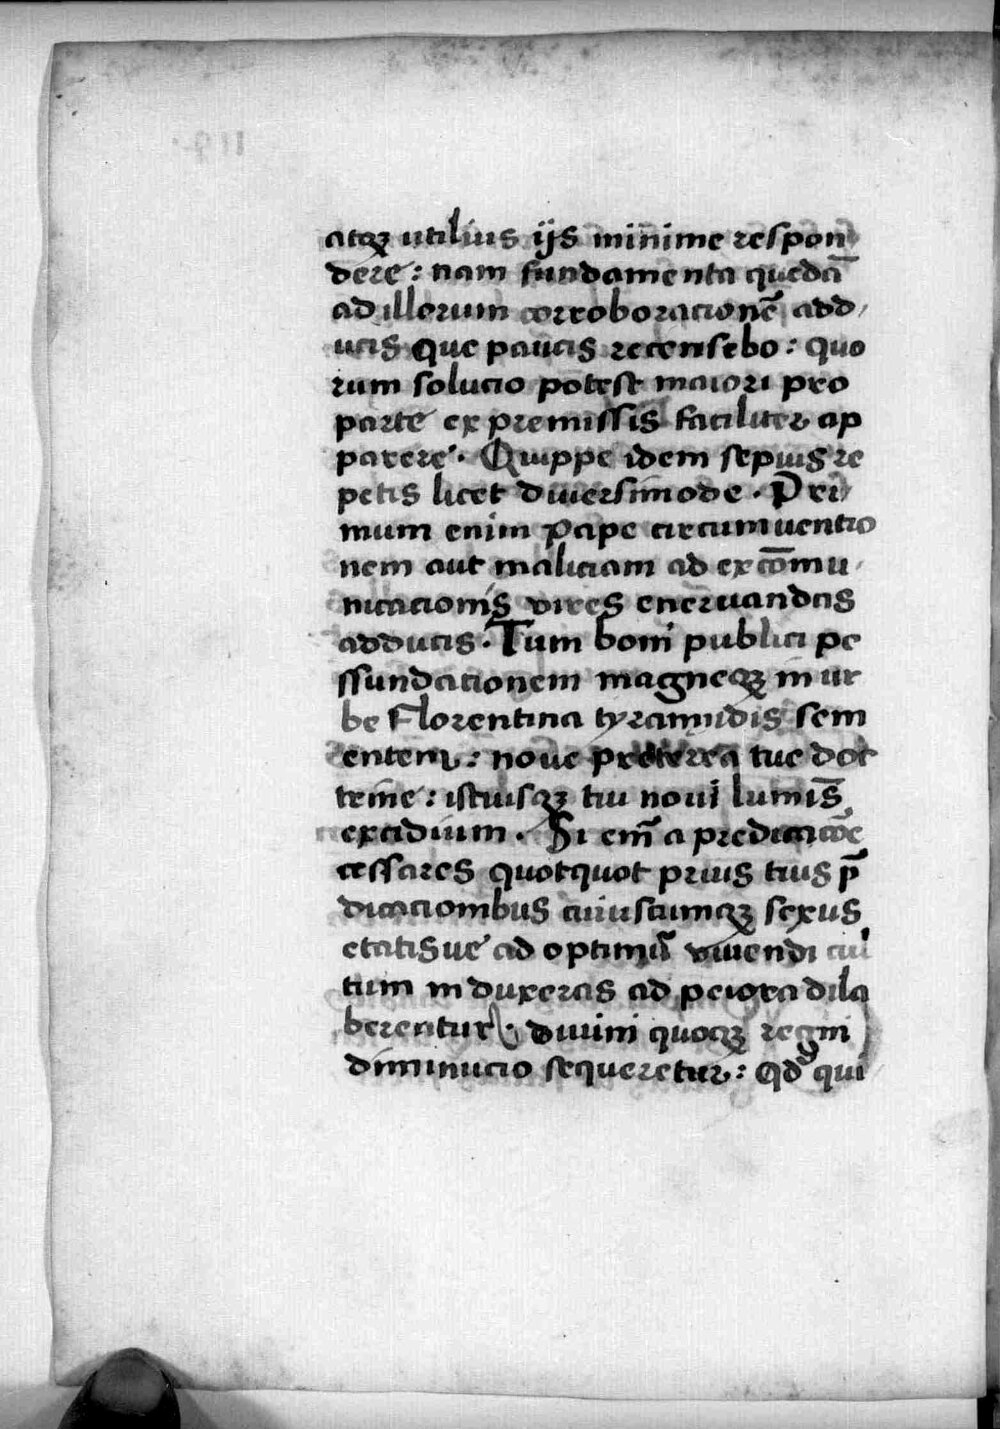 atqꝫ utilius ijs minime respon
dere: nam fundamenta quedā
ad illorum corroboracionē add
ucis que paucis recensebo: quo
rum solucio potest maiori pro
parte ex premissis faciliter ap
parere. Quippe idem sepius re
petis licet diuersimode. Pri
mum enim Pape circumuentio
nem aut maliciam ad excōmu
nicacionis vires eneruandas
adducis. Tum boni publici pe
ssundacionem magneqꝫ in ur
be Florentina tyrannidis sem
entem: noue preterea tue doc
trine: istiusqꝫ tui noui luminis
excidium. Si em̄ a predicacōe
cessares quotquot prius tuis p̄
dicacionibus cuiuscumqꝫ sexus
etatisue ad optimū viuendi cul
tum induxeras ad peiora dila
berentur. diuini quoqꝫ regni
diminucio sequeretur: Qd qui